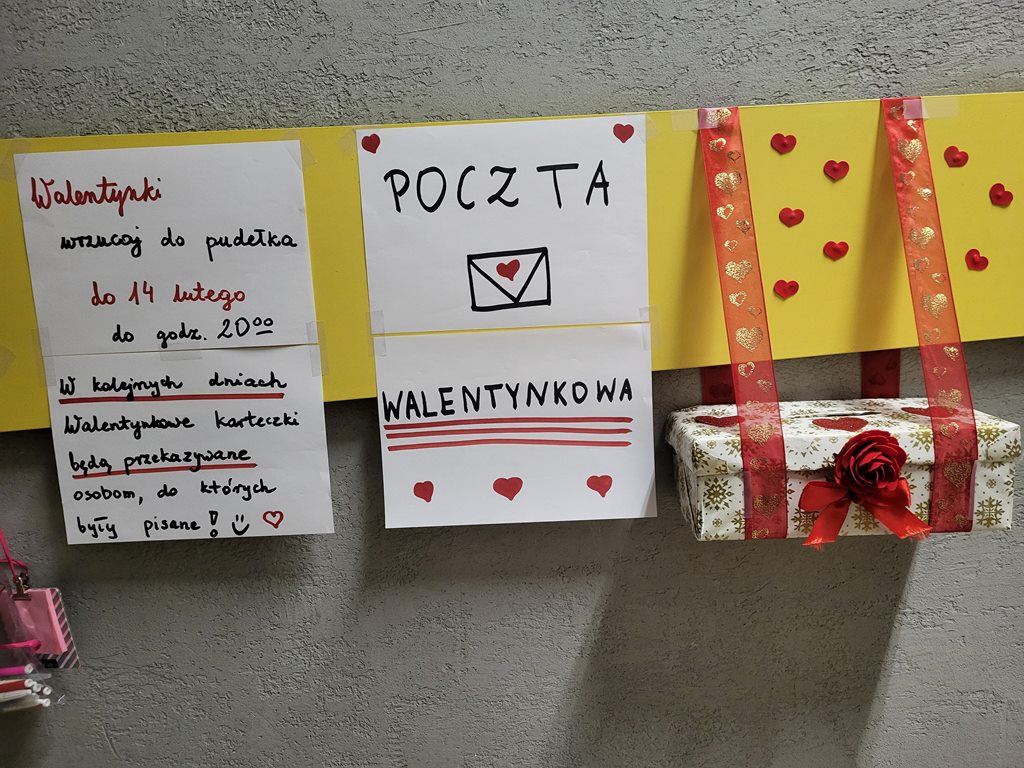 Walentynki
wrzucaj do pudełka
do 14 lutego
do godz. 20⁰⁰
W kolejnych dniach
Walentynkowe karteczki
będą przekazywane
osobom, do których
były pisane!
POCZTA
WALENTYNKOWA